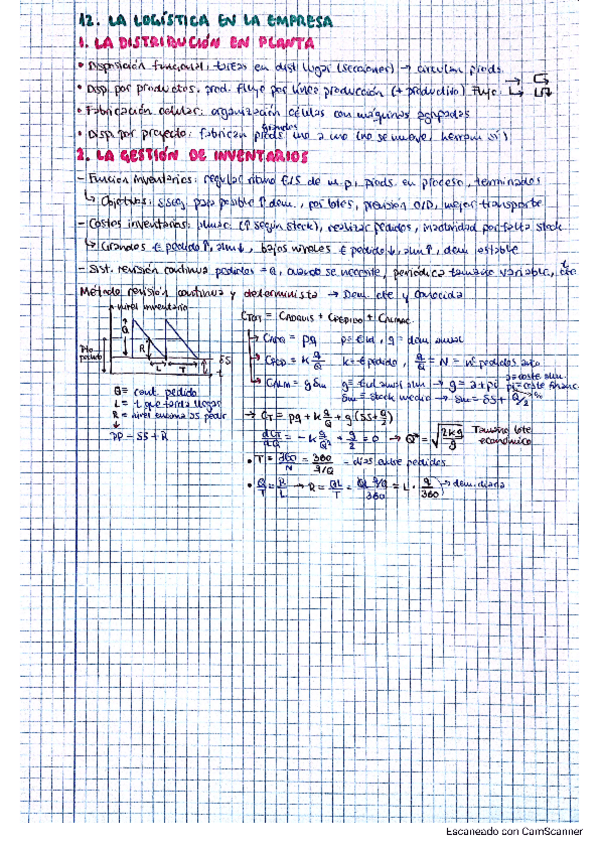 12. LA LOGÍSTICA EN LA EMPRESA
1. LA DISTRIBUCIÓN EN PLANTA
• Disposición funcional: tareas en dist lugar (secciones) → circulan prods.
• Disp. por productos: prod. flujo por línea producción (+ productivo) Flujo:
• Fabricación celular: organización células con máquinas agrupadas
• Disp. por proyecto: fabrican prods grandes uno a uno (no se mueve, herram sí)
2. LA GESTIÓN DE INVENTARIOS
- Función inventarios: regular ritmo E/S de m.p., prods. en proceso, terminados
↳ Objetivos: para posible ↑ dem., por lotes, previsión O/D, mejor transporte
- Costes inventarios: almac. (↑ según stock), realizar pedidos, inactividad por falta stock
↳ Grandes € pedido↑, alm↓, bajos niveles € pedido↓, alm↑, dem estable
- Sist. revisión continua pedidos = Q, cuando se necesite, periódica tamaño variable, t cte
Método revisión continua y determinista → Dem. cte y conocida
nivel inventario
CTOT = CADQUIS + CPEDIDO + CALMAC
Q
R
SS
L
T
t
→ CADQ = pq p = €/u, q = dem anual
→ CPED = K q/Q K = € pedido, q/Q = N = nº pedidos año
→ CALM = g Sm g = €/ud anual alm → g = a + pi a = coste alm. pi = coste financ.
Sm = stock medio → Sm = SS + Q/2
Q = cant. pedido
L = t que tarda llegar
R = nivel encima SS pedir
↓
PP = SS + R
→ CT = pq + K q/Q + g (SS + Q/2)
dCT/dQ = -K q/Q² + g/2 = 0 → Q* = √(2Kq/g) Tamaño lote económico
• T = 360/N = 360/(q/Q) - días entre pedidos
• Q/T = R/L → R = QL/T = QL q/Q / 360 = L · q/360 → dem. diaria
Escaneado con CamScanner